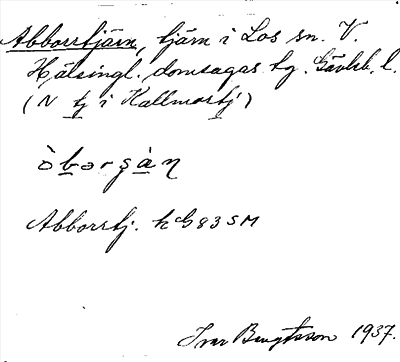 Abborrtjärn, tjärn i Los sn. V.
Hälsingl. domsagas tg. Gävleb. l.
(N tj i Kallmostj)
òbərgàn
Abborrtj. k G 83 SM
Ivar Bengtsson 1937.